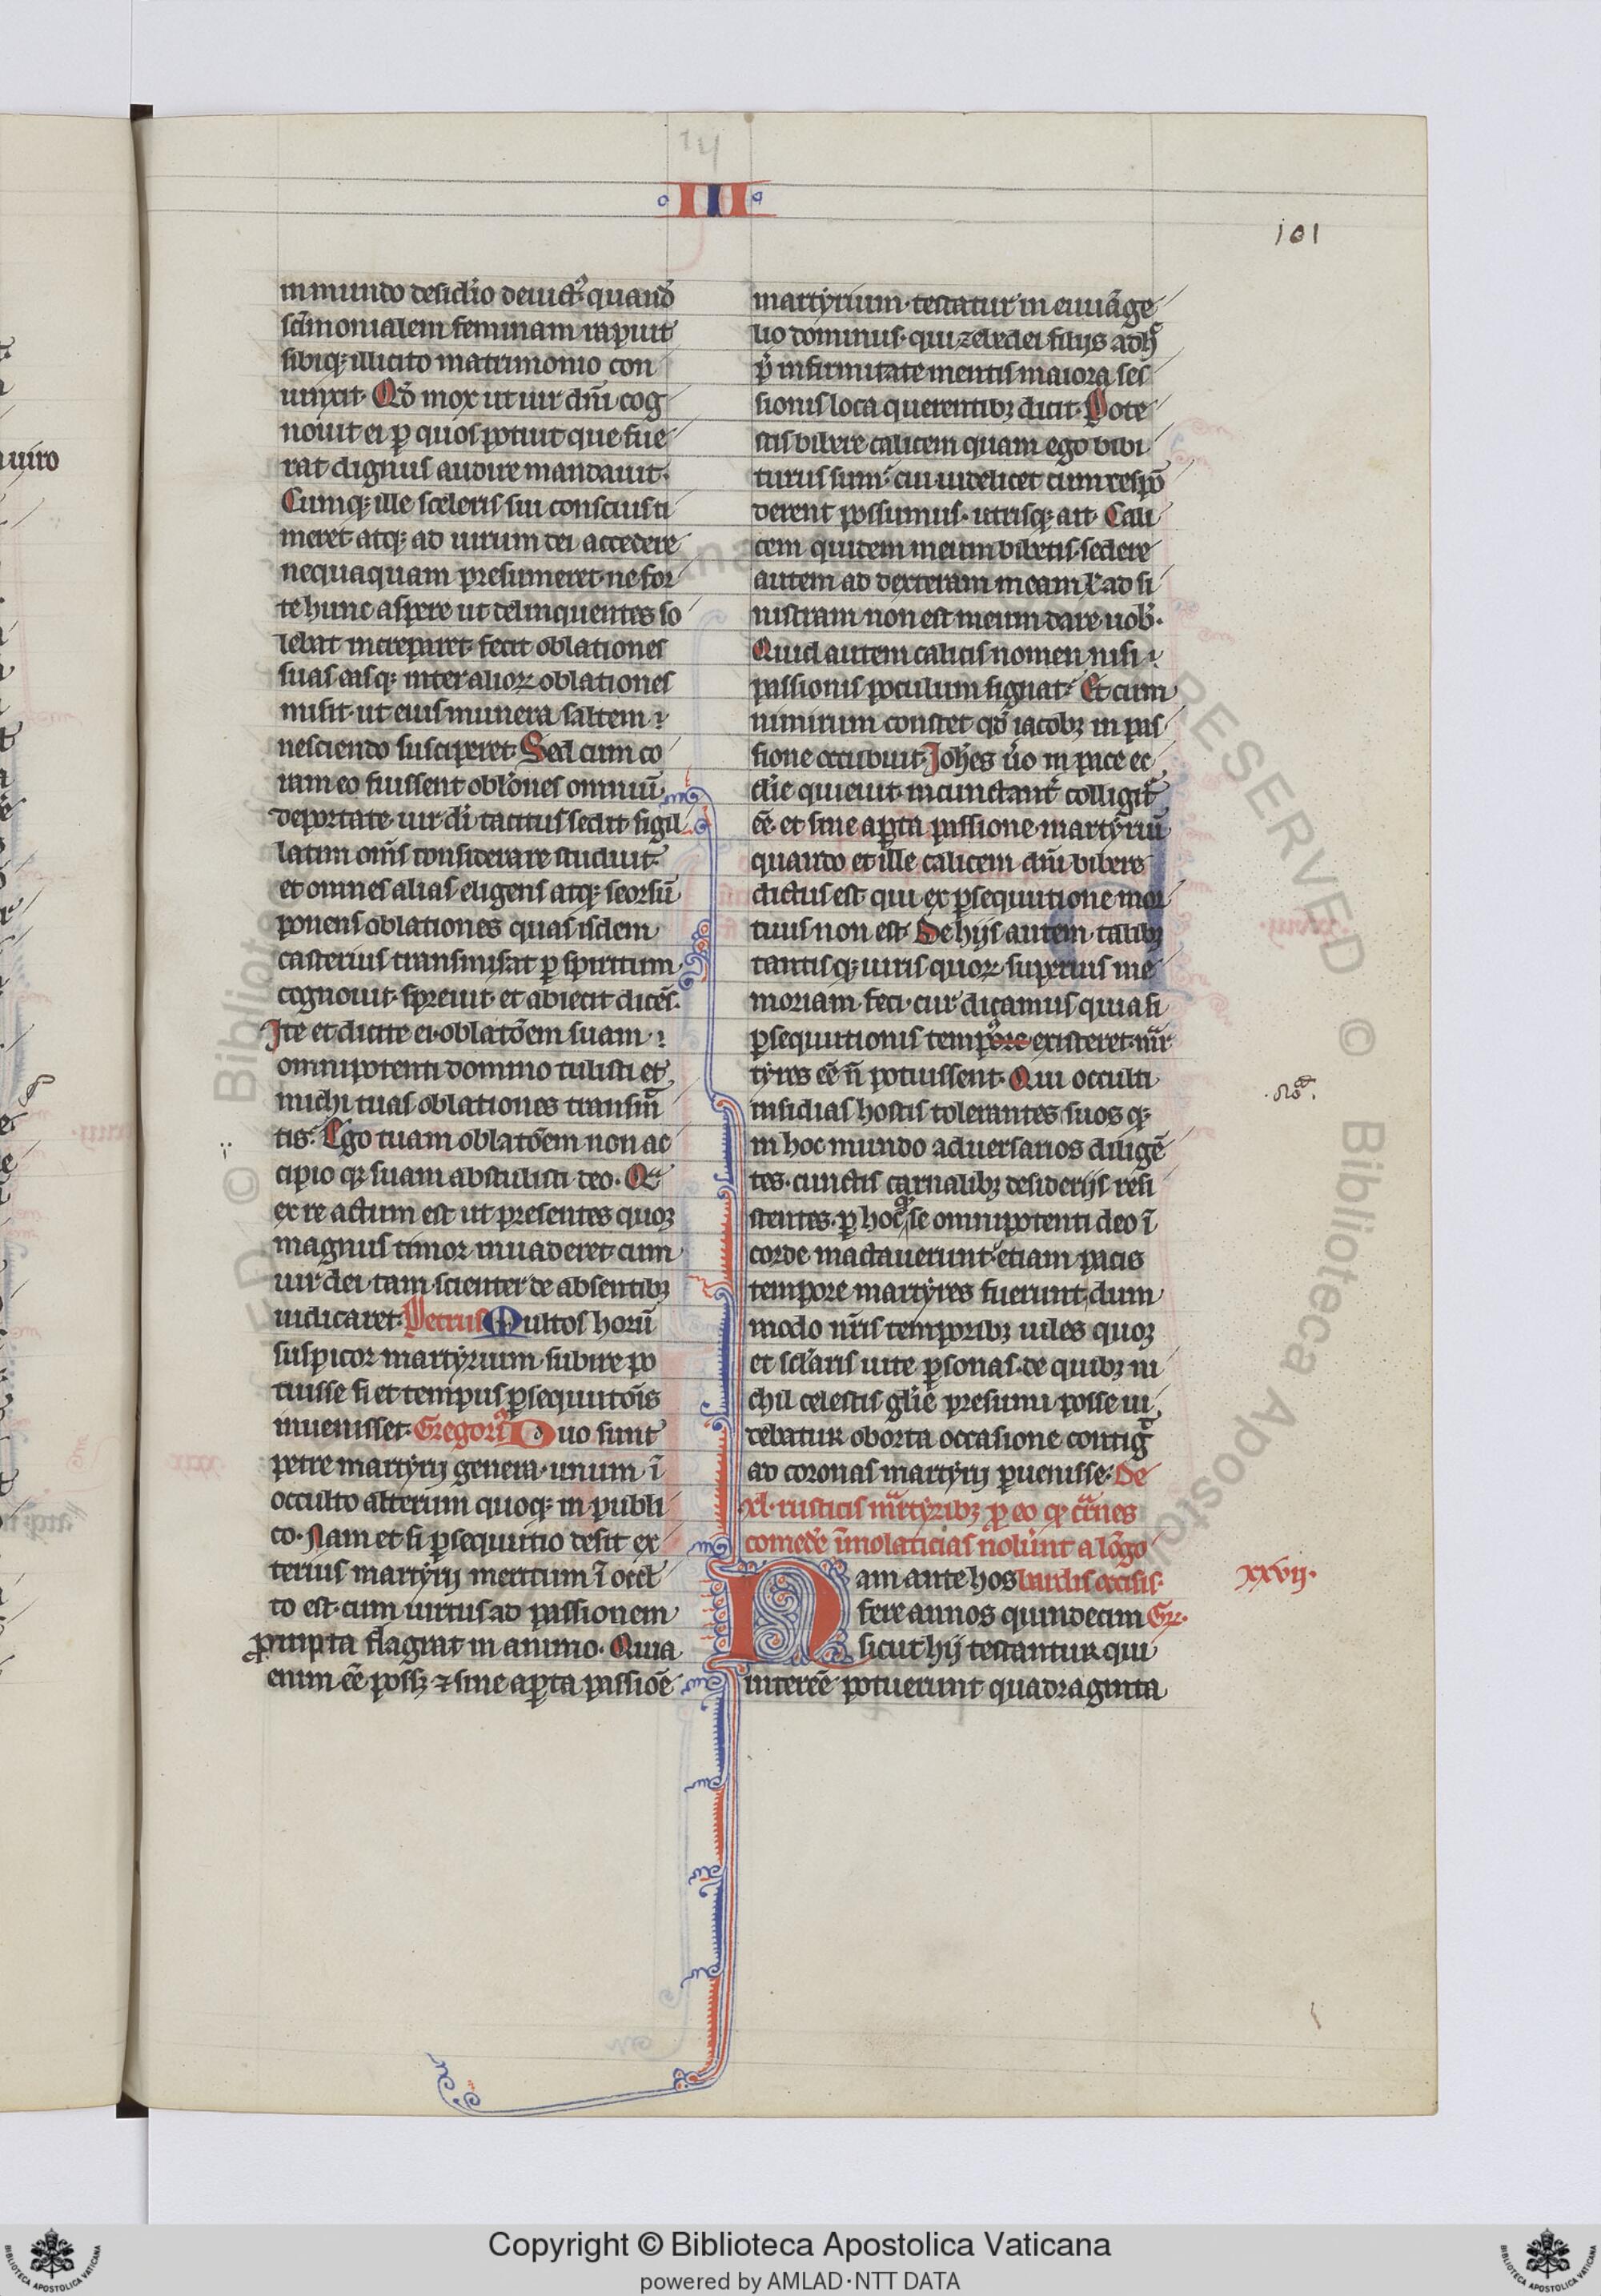 III
101
in mundo desid'io deuict' quand'
scīmonialem feminam rapuit
sibiq; illicito matrimonio con
iunxit. Qđ mox ut uir dn̄i cog
nouit ei p quos potuit que fue
rat dignus audire mandauit.
Cumq; ille sceleris sui conscius ti
meret atq; ad uirum dei accedere
nequaquam presumeret. ne for
te hunc aspere ut delinquentes so
lebat increparet. fecit oblationes
suas easq; inter alioꝝ oblationes
misit. ut eius munera saltem
nesciendo susciperet. Sed cum co
ram eo fuissent obl'ones omniū
deportate. uir dī tacitus sedit sigil
latim om̄s considerare studuit.
et omnes alias eligens atq; seorsū
ponens oblationes quas isdem
casterius transmisat ꝑ spiritum
cognouit. spreuit. et abiecit dicēs.
Ite et dicite ei. oblatōem suam
omnipotenti domino tulisti et
michi tuas oblationes transm̄
tis. Ego tuam oblatōem non ac
cipio q; suam abstulisti deo. Qa
ex re actum est ut presentes quoꝫ
magnus timor inuaderet. cum
uir dei tam scienter de absentibꝫ
iudicaret. Petrus Multos horū
suspicor martyrium subire po
tuisse si et tempus ꝑsequutōis
inuenisset. Gregori' Duo sunt
petre martyrij genera. unum ī
occulto alterum quoq; in publi
co. Nam et si ꝑsequutio desit ex
terius martyrij meritum ī occl'
to est. cum uirtus ad passionem
ꝓmpta flagrat in animo. Quia
enim eē possꝫ ⁊ sine aꝑta passiōe
martyrium. testatur in euuāge
lio dominus. qui zebedei filijs adh'
ꝓ infirmitate mentis maiora ses
sionis loca querentibꝫ dicit. Pote
stis bibere calicem quam ego bibi
turus sum. cui uidelicet cum respō
derent possumus. utrisq; ait. Cali
cem quidem meum bibetis. sedere
autem ad dexteram meam l' ad si
nistram non est meum dare uob'.
Quid autem calicis nomen nisi
passionis poculum signat. Et cum
nimirum constet qđ iacobꝫ in pas
sione occubuit. Joh'es ū'o in pace ec
cl'ie quieuit. incunctant' colligit'
eē. et sine aꝑta passione martyriū
quando et ille calicem dn̄i bibere
dictus est qui ex ꝑsequutione mor
tuus non est. De hijs autem talibꝫ
tantisq; uiris quoꝝ superius me
moriam feci. cur dicamus quia si
ꝑsequutionis tempore existeret. m̄r
tyres eē n̄ potuissent. Qui occulti
insidias hostis tolerantes. suosq;
in hoc mundo aduersarios diligē
tes. cunctis carnalibꝫ desiderijs resi
stentes. ꝑ hoc se omnipotenti deo ī
corde mactauerunt. etiam pacis
tempore martyres fuerunt dum
modo nr̄is temporibꝫ uiles quoꝫ
et scl'aris uite ꝑsonas. de quibꝫ ni
chil celestis gl'ie presumi posse ui
debatur oborta occasione contiḡ
ad coronas martyrij ꝑuenisse. De
xl. rusticis m̄rtyribꝫ ꝓ eo q; c̄rnes
comed'e īmolaticias nolūnt a lōgo
Nam ante hos bardis occisis. xxvij.
fere annos quindecim Gr̄.
sicut hij testantur qui
intereē potuerunt quadraginta
Copyright © Biblioteca Apostolica Vaticana
powered by AMLAD·NTT DATA